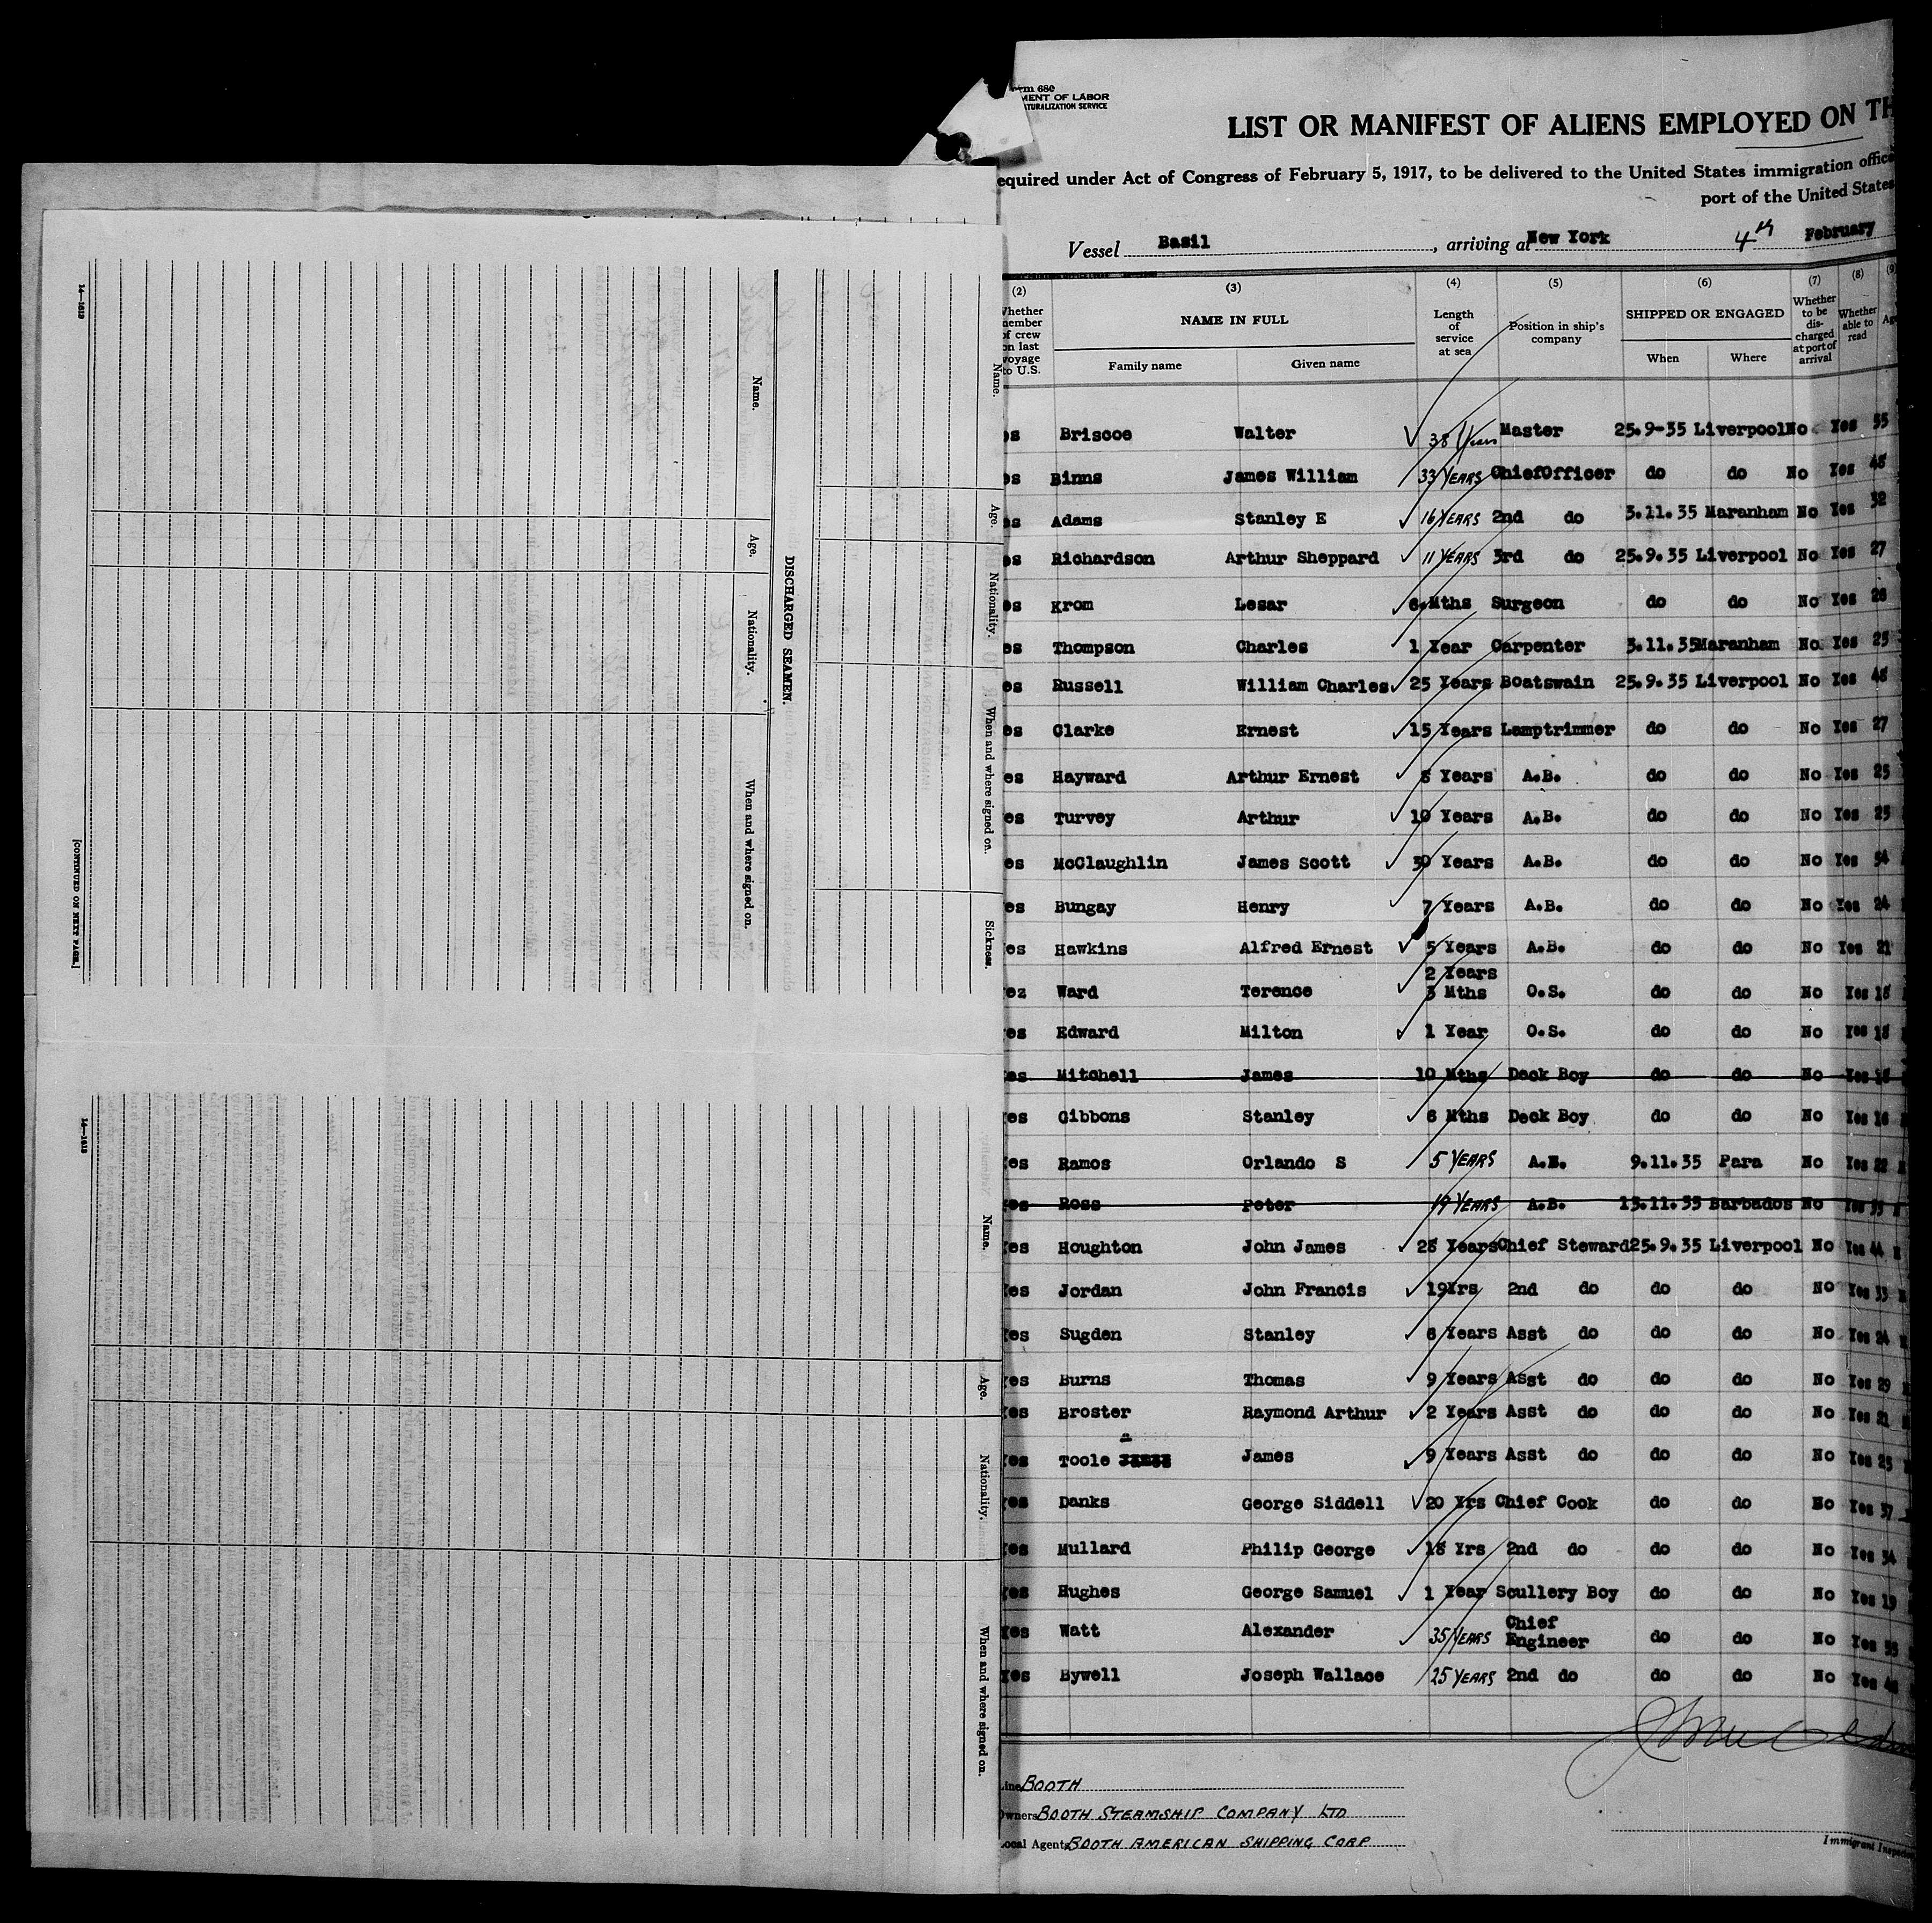 rm 680
MENT OF LABOR
TURALIZATION SERVICE
LIST OR MANIFEST OF ALIENS EMPLOYED ON TH
equired under Act of Congress of February 5, 1917, to be delivered to the United States immigration office
port of the United States
Vessel Basil, arriving at New York 4th February
(2) (3) (4) (5) (6) (7) (8) (9)
Whether member of crew on last voyage to U.S.
NAME IN FULL
Family name Given name
Length of service at sea
Position in ship's company
SHIPPED OR ENGAGED
When Where
Whether to be discharged at port of arrival
Whether able to read
es Briscoe Walter 38 Years Master 25.9-35 Liverpool No Yes 55
es Binns James William 33 YEARS ChiefOfficer do do No Yes 48
es Adams Stanley E 16 YEARS 2nd do 3.11.35 Maranham No Yes 32
es Richardson Arthur Sheppard 11 YEARS 3rd do 25.9.35 Liverpool No Yes 27
es Krom Lesar 6 Mths Surgeon do do No Yes 26
es Thompson Charles 1 Year Carpenter 3.11.35 Maranham No Yes 25
es Russell William Charles 25 Years Boatswain 25.9.35 Liverpool No Yes 48
es Clarke Ernest 15 Years Lamptrimmer do do No Yes 27
es Hayward Arthur Ernest Years A.B. do do No Yes 25
es Turvey Arthur 10 Years A.B. do do No Yes 25
es McClaughlin James Scott 30 Years A.B. do do No Yes 54
es Bungay Henry 7 Years A.B. do do No Yes 24
es Hawkins Alfred Ernest 5 Years A.B. do do No Yes 21
2 Years
ez Ward Terence 3 Mths O.S. do do No Yes 18
es Edward Milton 1 Year O.S. do do No Yes 18
es Mitchell James 10 Mths Deck Boy do do No Yes
es Gibbons Stanley 6 Mths Deck Boy do do No Yes 16
es Ramos Orlando S 5 YEARS A.B. 9.11.35 Para No Yes 22
es Ross Peter 19 YEARS A.B. 13.11.35 Barbados No Yes 39
es Houghton John James 28 Years Chief Steward 25.9.35 Liverpool No Yes 44
es Jordan John Francis 19Yrs 2nd do do do No Yes 33
es Sugden Stanley Years Asst do do do No Yes 24
es Burns Thomas 9 Years Asst do do do No Yes 29
es Broster Raymond Arthur 2 Years Asst do do do No Yes 21
es Toole James 9 Years Asst do do do No Yes 25
es Danks George Siddell 20 Yrs Chief Cook do do No Yes 37
es Mullard Philip George 18 Yrs 2nd do do do No Yes 34
es Hughes George Samuel 1 Year Scullery Boy do do No Yes 19
Chief
es Watt Alexander 35 YEARS Engineer do do No Yes 55
es Bywell Joseph Wallace 25 YEARS 2nd do do do No Yes
Line BOOTH
Owners BOOTH STEAMSHIP COMPANY LTD
Local Agents BOOTH AMERICAN SHIPPING CORP
Immigrant Inspector
14—1613
Name.
Age.
Nationality.
When and where signed on.
Sickness.
DISCHARGED SEAMEN.
Name.
Age.
Nationality.
When and where signed on.
[CONTINUED ON NEXT PAGE.]
14—1613
Name.
Age.
Nationality.
When and where signed on.